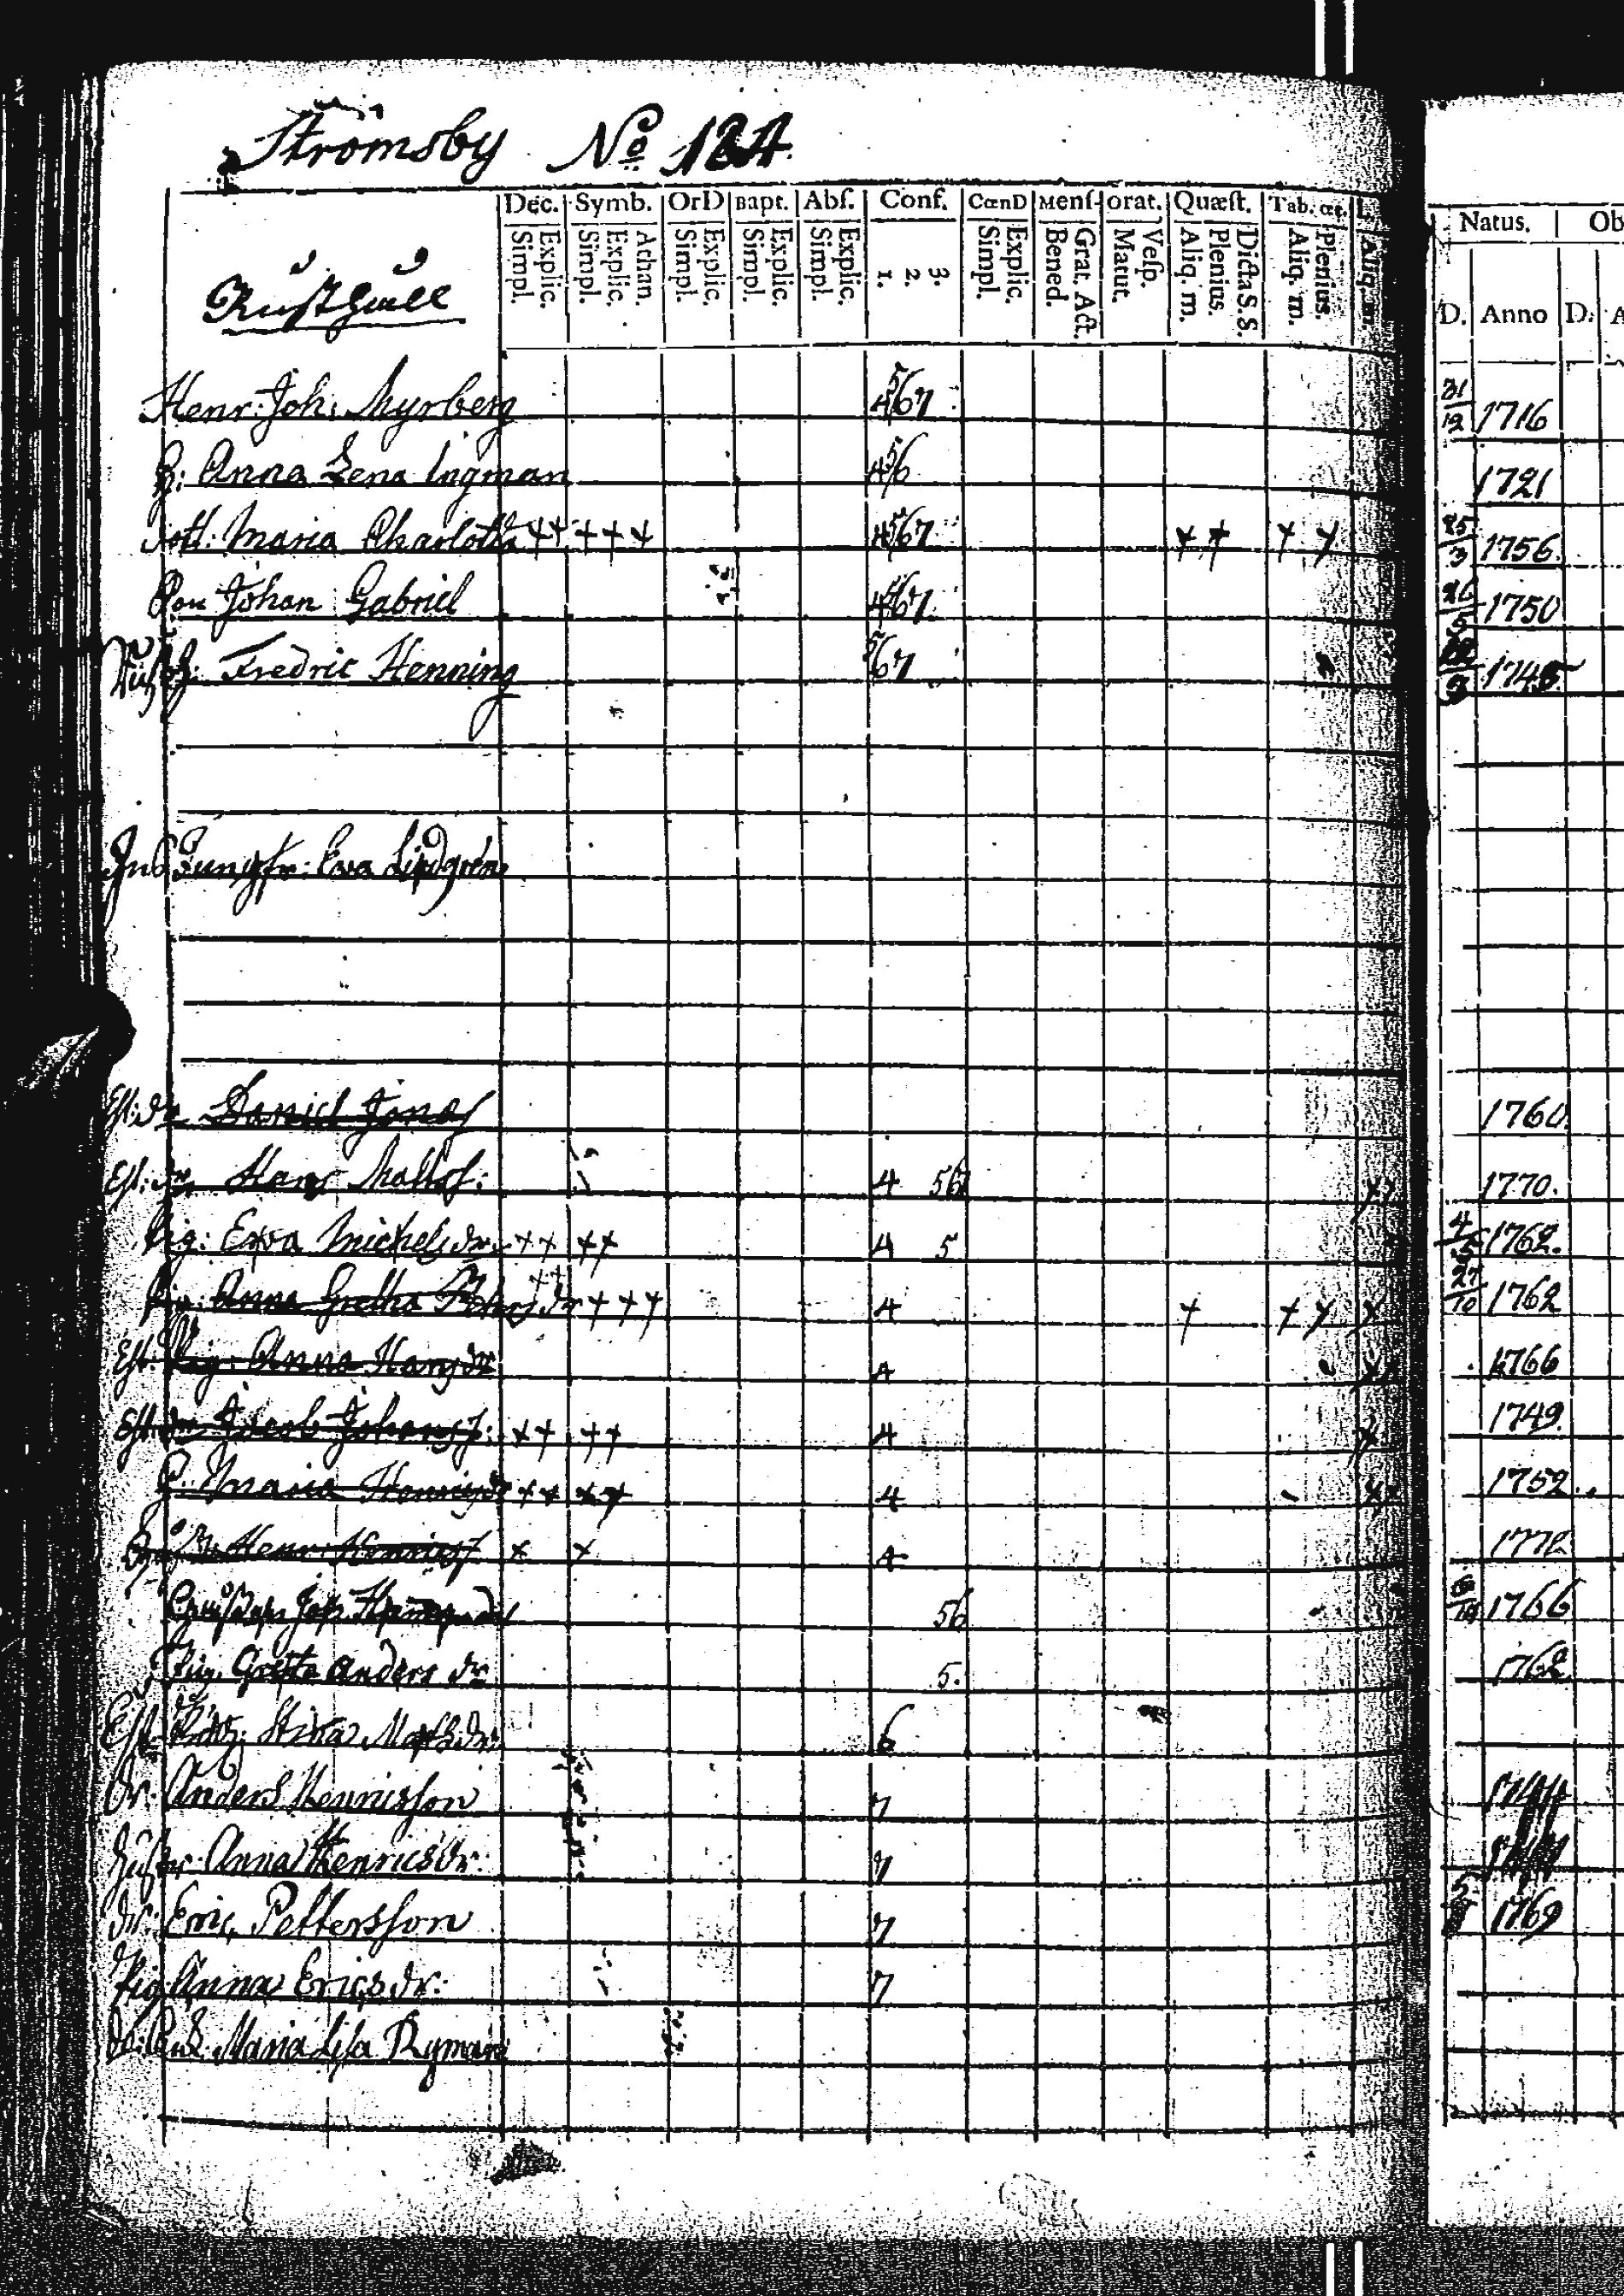 Strömsby No 124
Dec. Symb. OrD Bapt. Abſ. Conf. CœnD Menſ- orat. Quæſt. Tab. œc. L.
Simpl. Explic. Simpl. Explic. Athan. Simpl. Explic. Simpl. Explic. Simpl. Explic. 1. 2. 3. Simpl. Explic. Bened. Grat. Act. Matut. Veſp. Aliq. m. Plenius. Dicta S. S. Aliq. m. Plenius. Aliq. m.
Natus. Ob
D. Anno D. A
Rusthåll
Henr: Joh: Myrberg 4567 31/12 1716
H: Anna Lena Ingman 456 1721
Maria Charlotta ++ +++ 4567 ++ ++ 25/3 1756
Son Johan Gabriel 4567 26/5 1750
Fredric Henning 567 1745
Jungfr: Eva Lindgren
Daniel Jonas 1760
Hans Matts: 4 56 1770.
Pig: Eva Michelsdr ++ ++ 4 5 4/5 1762.
Pig: Anna Gretha ++ +++ 4 + ++ + 27/10 1762
Pig: Anna Hansdr 4 1766
Jacob Johans: ++ ++ 4 + 1749.
H: Maria ++ ++ 4 1752
Henr: + + 4 1772
56 1766
Pig. Greta Anders dr 5. 1762
Stina Mattsdr 6
Dr: Anders Henricsson 7
Hustr: Anna Henricsdr: 7
Dr: Eric Pettersson 7 1769
Pig Anna Ericsdr: 7
Maria Lisa Ryman